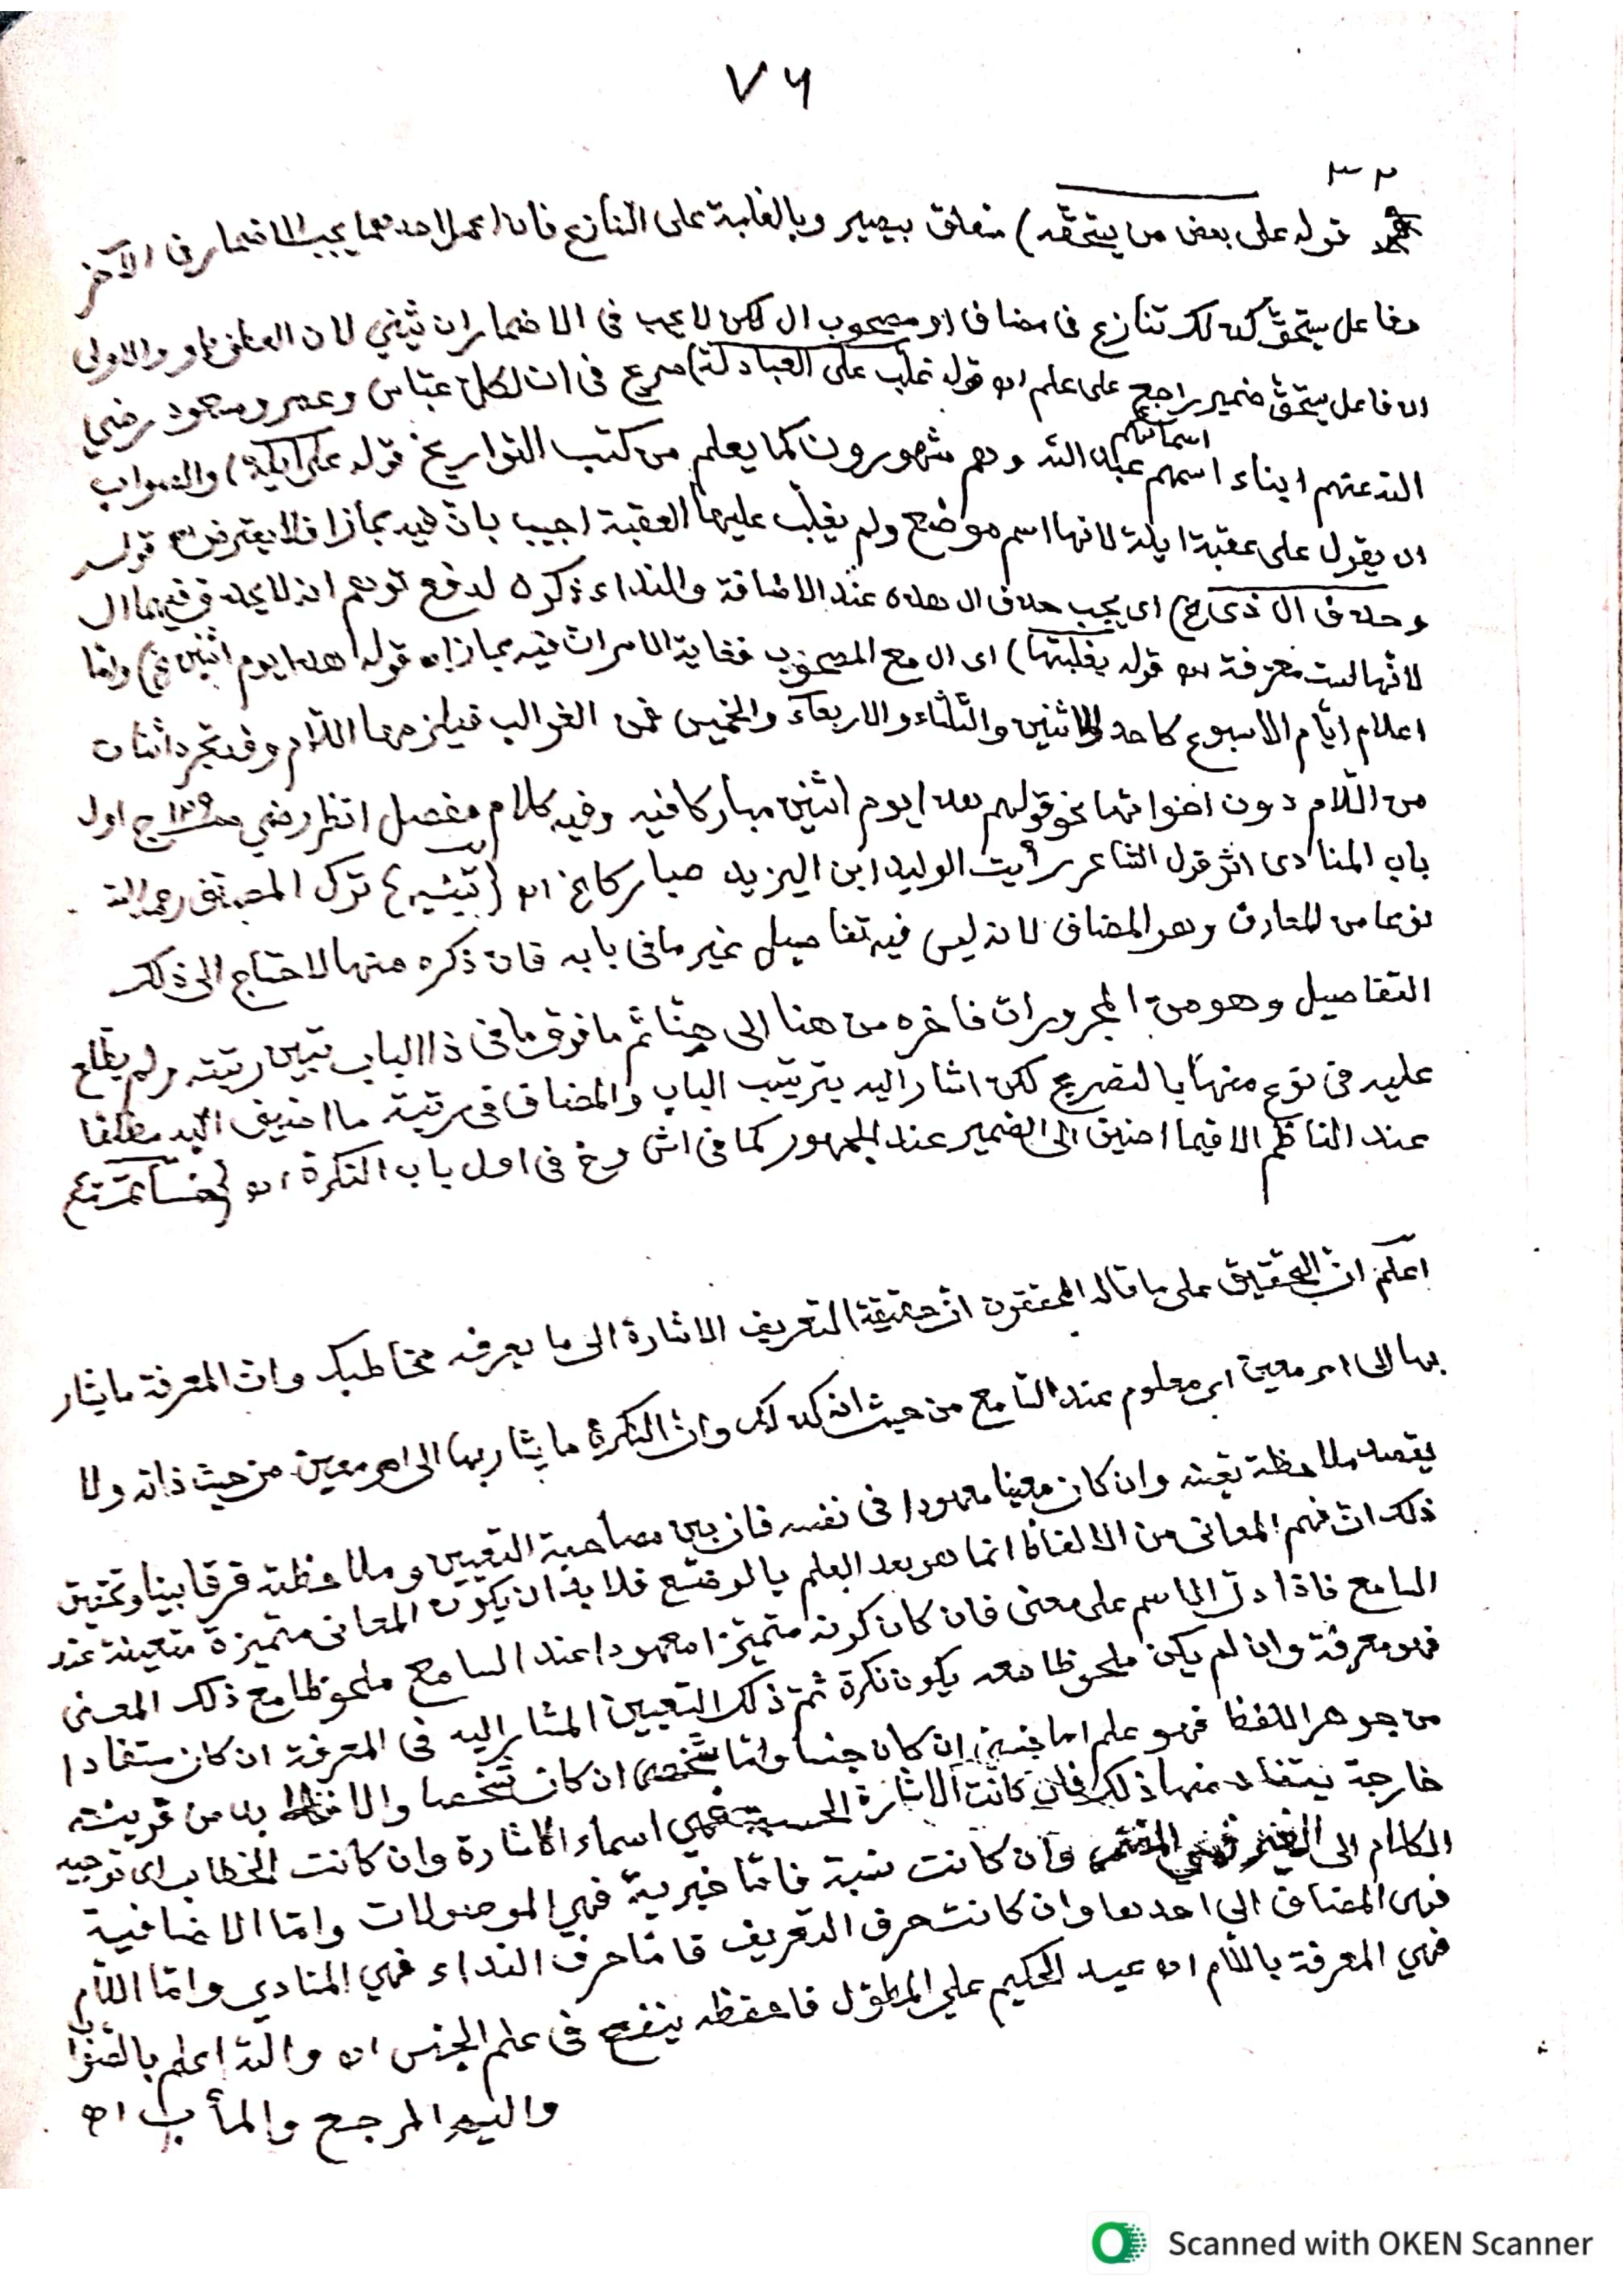 ٧٦
٣٢
قوله على بعض من يستحقه) متعلق بيصير وبالغلبة على التنازع فان اعمل احدهما يجب الاضمار فى الآخر
ففاعل يستحق كذلك تنازع فى مضاف او مصحوب ال لكن لا يجب فى الاضمار ان يثني لان العاطف او والاولى
ان فاعل يستحق ضمير راجع على علم اه قوله غلب على العبادلة) صرح فى ان لكل عباس وعمر ومسعود رضي
الله عنهم ابناء اسمهم اسمائهم عبد الله وهم مشهورون كما يعلم من كتب التواريخ قوله على ايلة) والصواب
ان يقول على عقبة ايلة لانها اسم موضع ولم يغلب عليها العقبة اجيب بان فيه مجازا فلا يعترض قوله
وحذف ال ذى الخ) اى يجب حذف ال هذه عند الاضافة والنداء ذكره لدفع توهم انه لا يحذف فيهما ال
لانها ليست معرفة اه قوله بغلبتها) اى ال مع المصحوب فغاية الامر ان فيه مجازا اه قوله هذا يوم اثنين الخ) واما
اعلام ايّام الاسبوع كاحد والاثنين والثلثاء والاربعاء والخميس فمن الغوالب فيلزمها اللام وقد تجرد اثنان
من اللّام دون اخواتها نحو قولهم هذا يوم اثنين مباركا فيه وفيه كلام مفصل انظر رضي ج اول
باب المنادى اثر قول الشاعر رأيت الوليد ابن اليزيد مباركا الخ اه (تنبيه) ترك المصنف رحمه الله
نوعا من المعارف وهو المضاف لانه ليس فيه تفاصيل غير ما فى بابه فان ذكره منها لاحتاج الى ذلك
التفاصيل وهو من المجرورات فاخره من هنا الى هنا ثم ما فوق ما فى ذا الباب تبين رتبته ولم يطلع
عليه فى نوع منها بالتصريح لكن اشار اليه بترتيب الباب والمضاف فى رتبة ما اضيف اليه مطلقا
عند الناظم الا فيما اضيف الى الضمير عند الجمهور كما فى اش وخ فى اول باب النكرة اه
اعلم ان التحقيق على ما قاله المحققون ان حقيقة التعريف الاشارة الى ما يعرفه مخاطبك وان المعرفة ما يشار
بها الى امر معين اى معلوم عند السامع من حيث انه كذلك وان النكرة ما يشار بها الى امر معين من حيث ذاته ولا
يقصد ملاحظة تعينه وان كان معينا معهودا فى نفسه فان بين مصاحبة التعيين وملاحظته فرقا بينا وتحقيق
ذلك ان فهم المعانى من الالفاظ انما هو بعد العلم بالوضع فلا بد ان يكون المعانى متميزة متعينة عند
السامع فاذا دل الاسم على معنى فان كان كونه متميزا معهودا عند السامع ملحوظا مع ذلك المعنى
فهو معرفة وان لم يكن ملحوظا معه يكون نكرة ثم ذلك التعيين المشار اليه فى المعرفة ان كان مستفادا
من جوهر اللفظ فهو علم اما جنسي ان كان جنسا واما شخصي ان كان شخصا والا فلا بد من قرينة
خارجة يستفاد منها ذلك فان كانت الاشارة الحسية فهي اسماء الاشارة وان كانت الخطاب اى توجيه
الكلام الى الغير فهي وان كانت نسبة فاما خبرية فهي الموصولات واما الاضافية
فهى المضاف الى احدها وان كانت حرف التعريف فاما حرف النداء فهي المنادي واما اللام
فهي المعرفة باللام اه عبد الحكيم علي المطول فاحفظه ينفع فى علم الجنس اه والله اعلم بالصواب
واليه المرجع والمأب اه
Scanned with OKEN Scanner